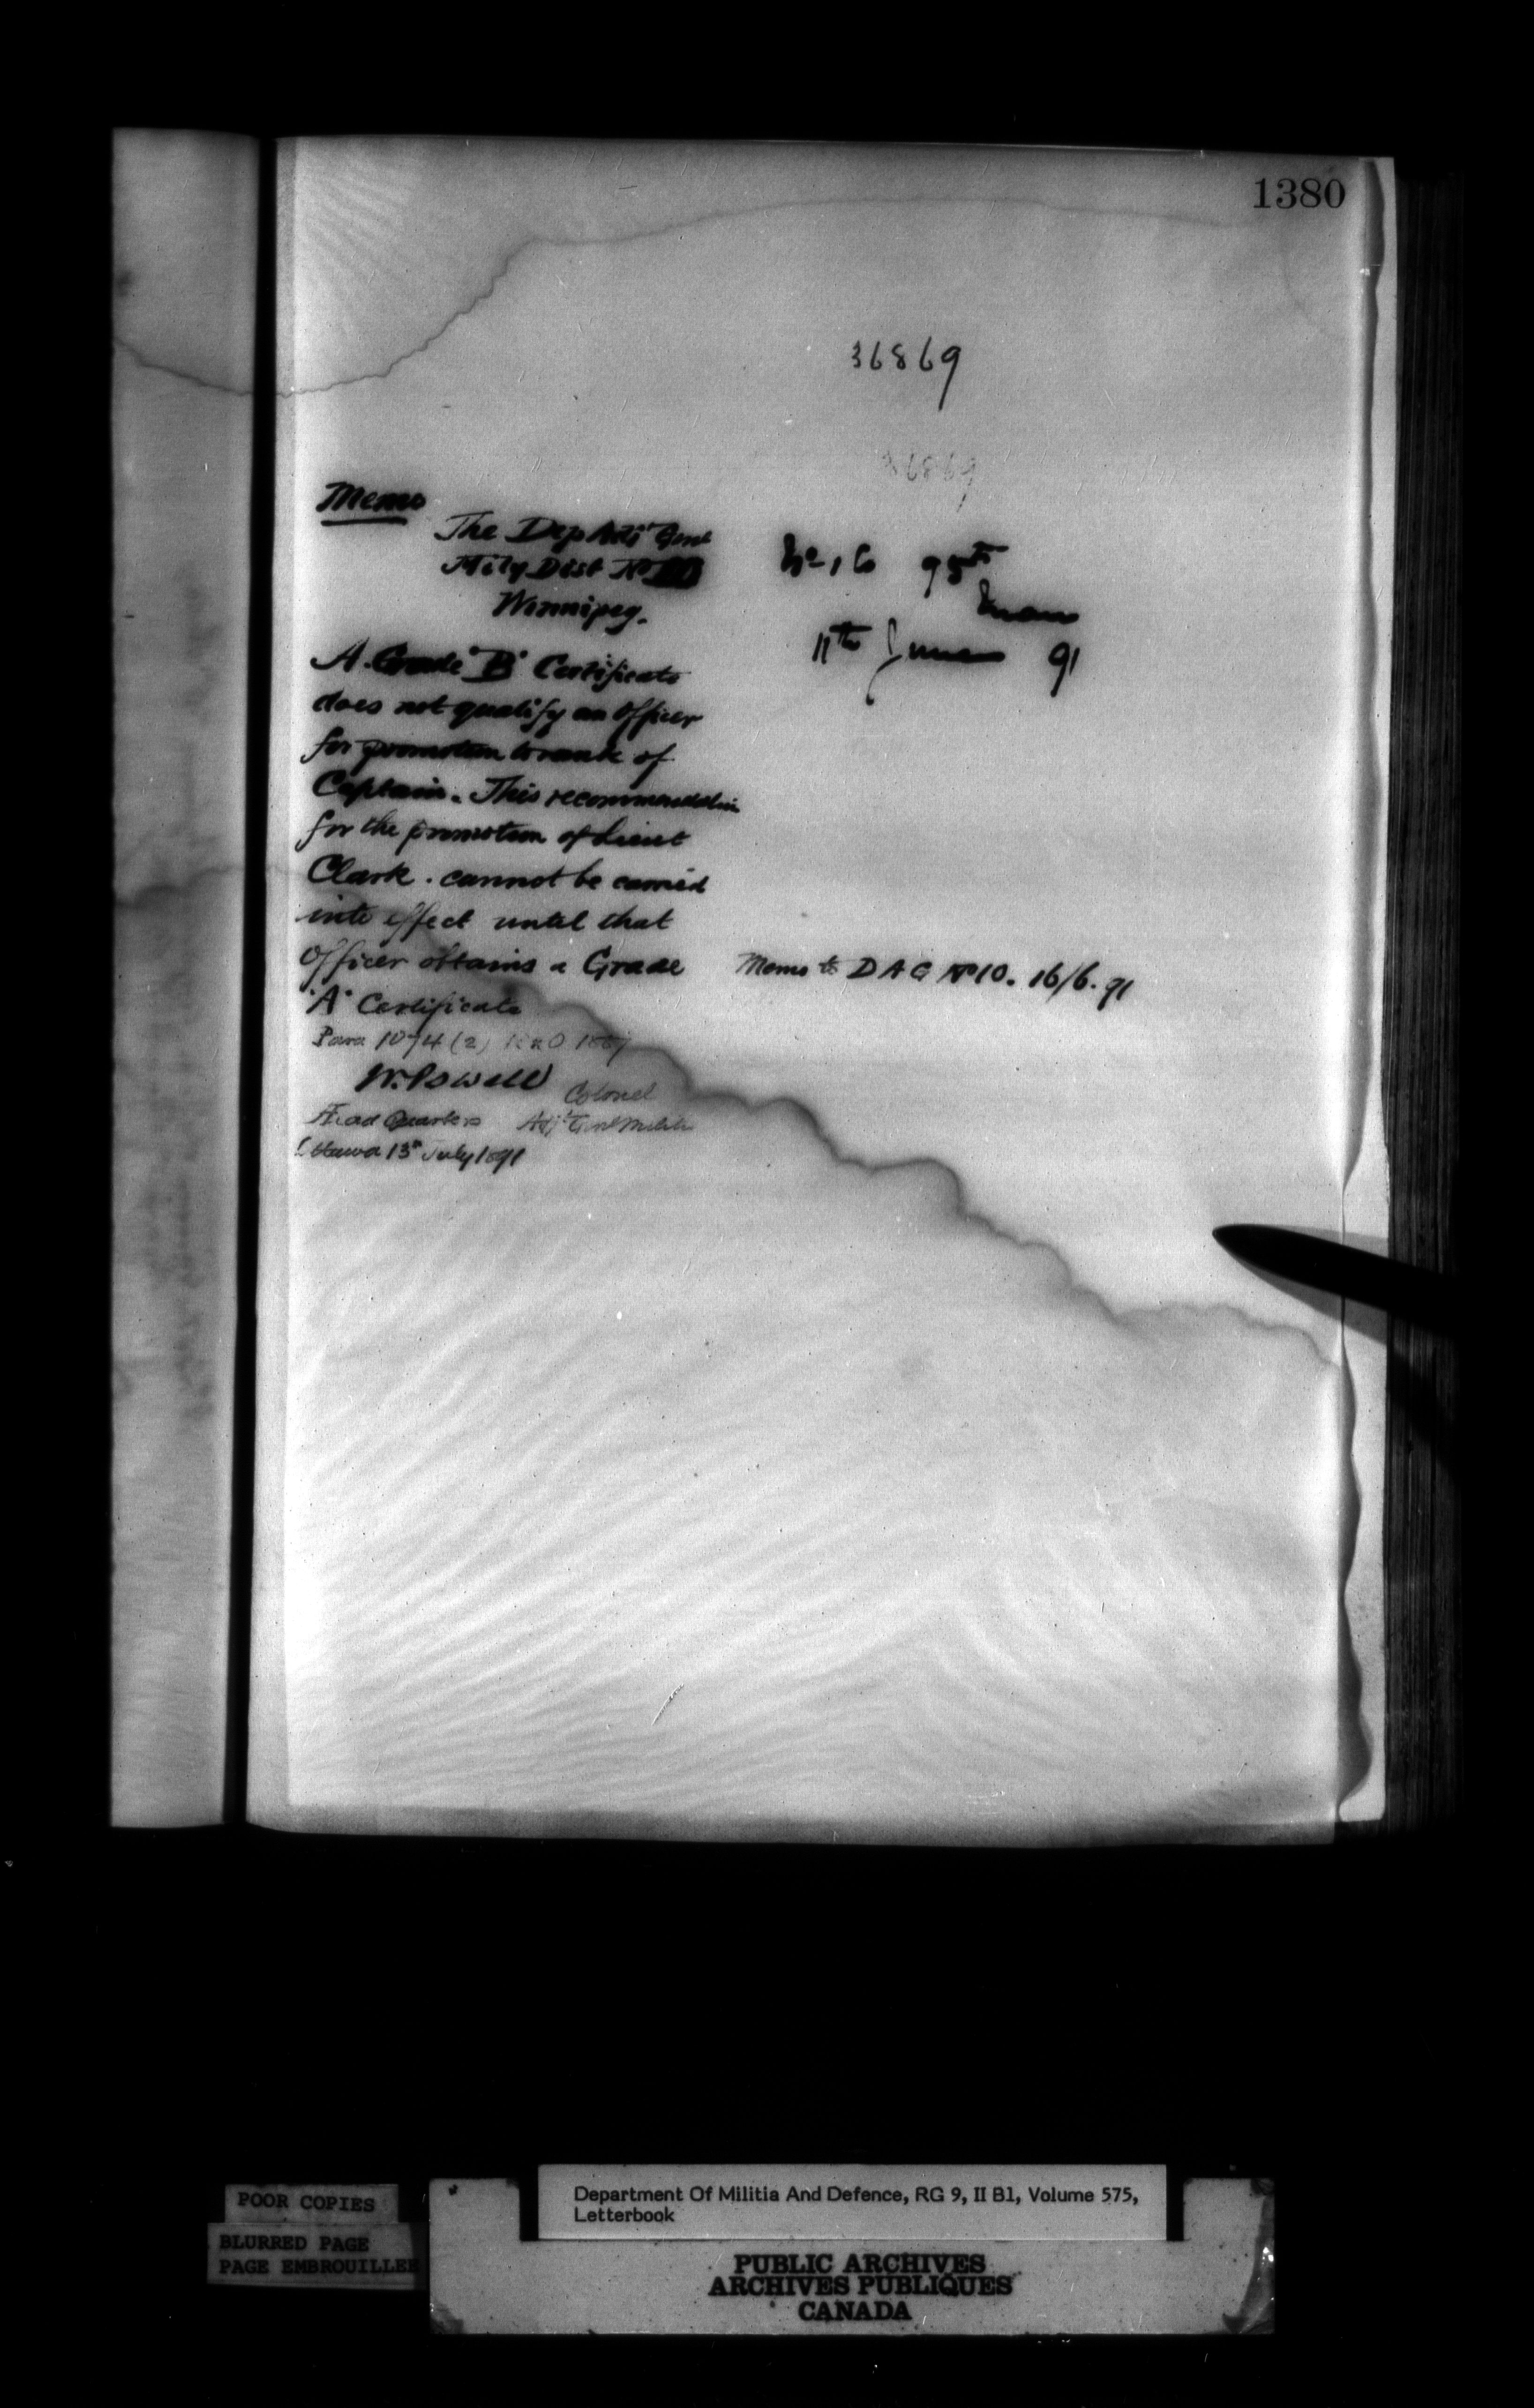 1380
36869
Memo
The Dep Adj' Genl
Mily Dist No 10
Winnipeg.
No 16 95th
11th June 91
A Grade "B" Certificate
does not qualify an Officer
for promotion to rank of
Captain. This recommendation
for the promotion of Lieut
Clark. cannot be carried
into effect until that
Officer obtains a Grade
"A" Certificate
Memo to D A G No 10. 16/6. 91
Para 1074 (2) R & O 1887
W. Powell
Colonel
Head Quarters Adj't Genl Militia
Ottawa 13th July 1891
POOR COPIES
BLURRED PAGE
PAGE EMBROUILLEE
Department Of Militia And Defence, RG 9, II B1, Volume 575,
Letterbook
PUBLIC ARCHIVES
ARCHIVES PUBLIQUES
CANADA